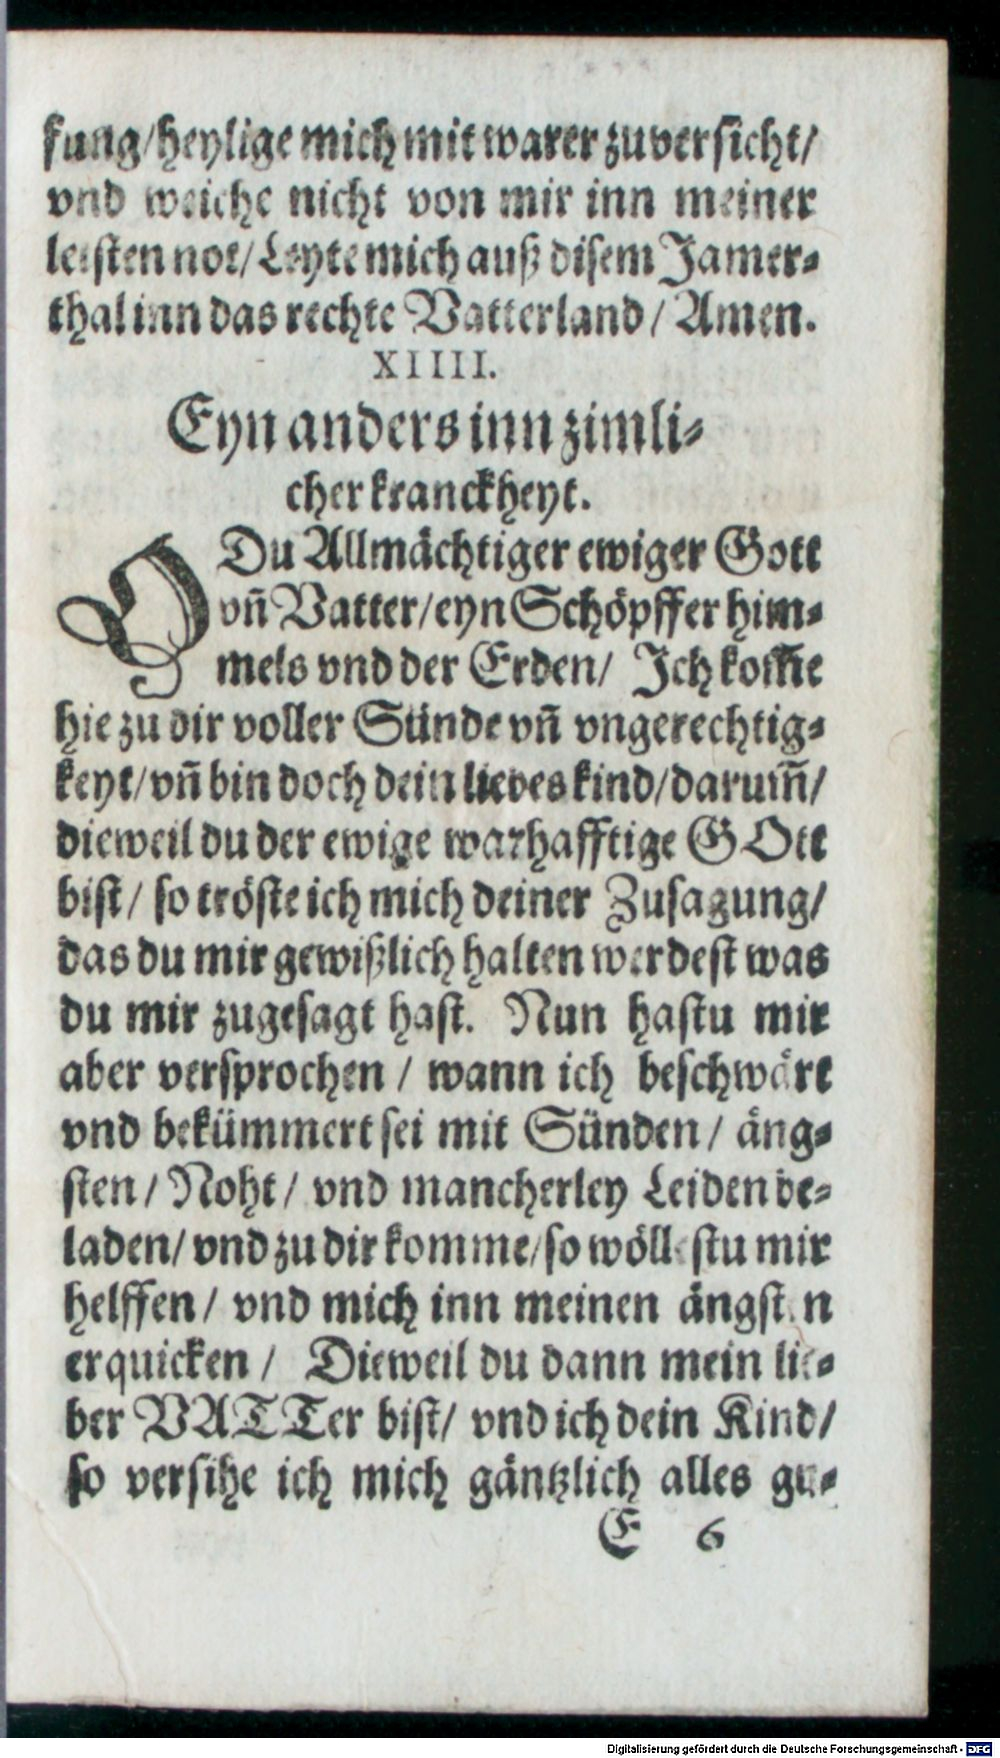 kung/heylige mich mit warer zuversicht/
vnd weiche nicht von mir inn meiner
letsten not/Leyte mich auß disem Jamer⸗
thal inn das rechte Vatterland/Amen.
XIIII.
Eyn anders inn zimli⸗
cher kranckheyt.
O Du Allmächtiger ewiger Gott
vñ Vatter/eyn Schöpffer him⸗
mels vnd der Erden/ Ich kom̃e
hie zu dir voller Sünde vñ vngerechtig⸗
keyt/vñ bin doch dein liebes kind/darum̃/
dieweil du der ewige warhafftige GOtt
bist/ so tröste ich mich deiner Zusagung/
das du mir gewißlich halten werdest was
du mir zugesagt hast. Nun hastu mir
aber versprochen / wann ich beschwärt
vnd bekümmert sei mit Sünden / äng⸗
sten / Noht / vnd mancherley Leiden be⸗
laden/ vnd zu dir komme/so wöllestu mir
helffen / vnd mich inn meinen ängsten
erquicken / Dieweil du dann mein lie⸗
ber VATTer bist/ vnd ich dein Kind/
so versihe ich mich gäntzlich alles gu⸗
E 6
Digitalisierung gefördert durch die Deutsche Forschungsgemeinschaft - DFG